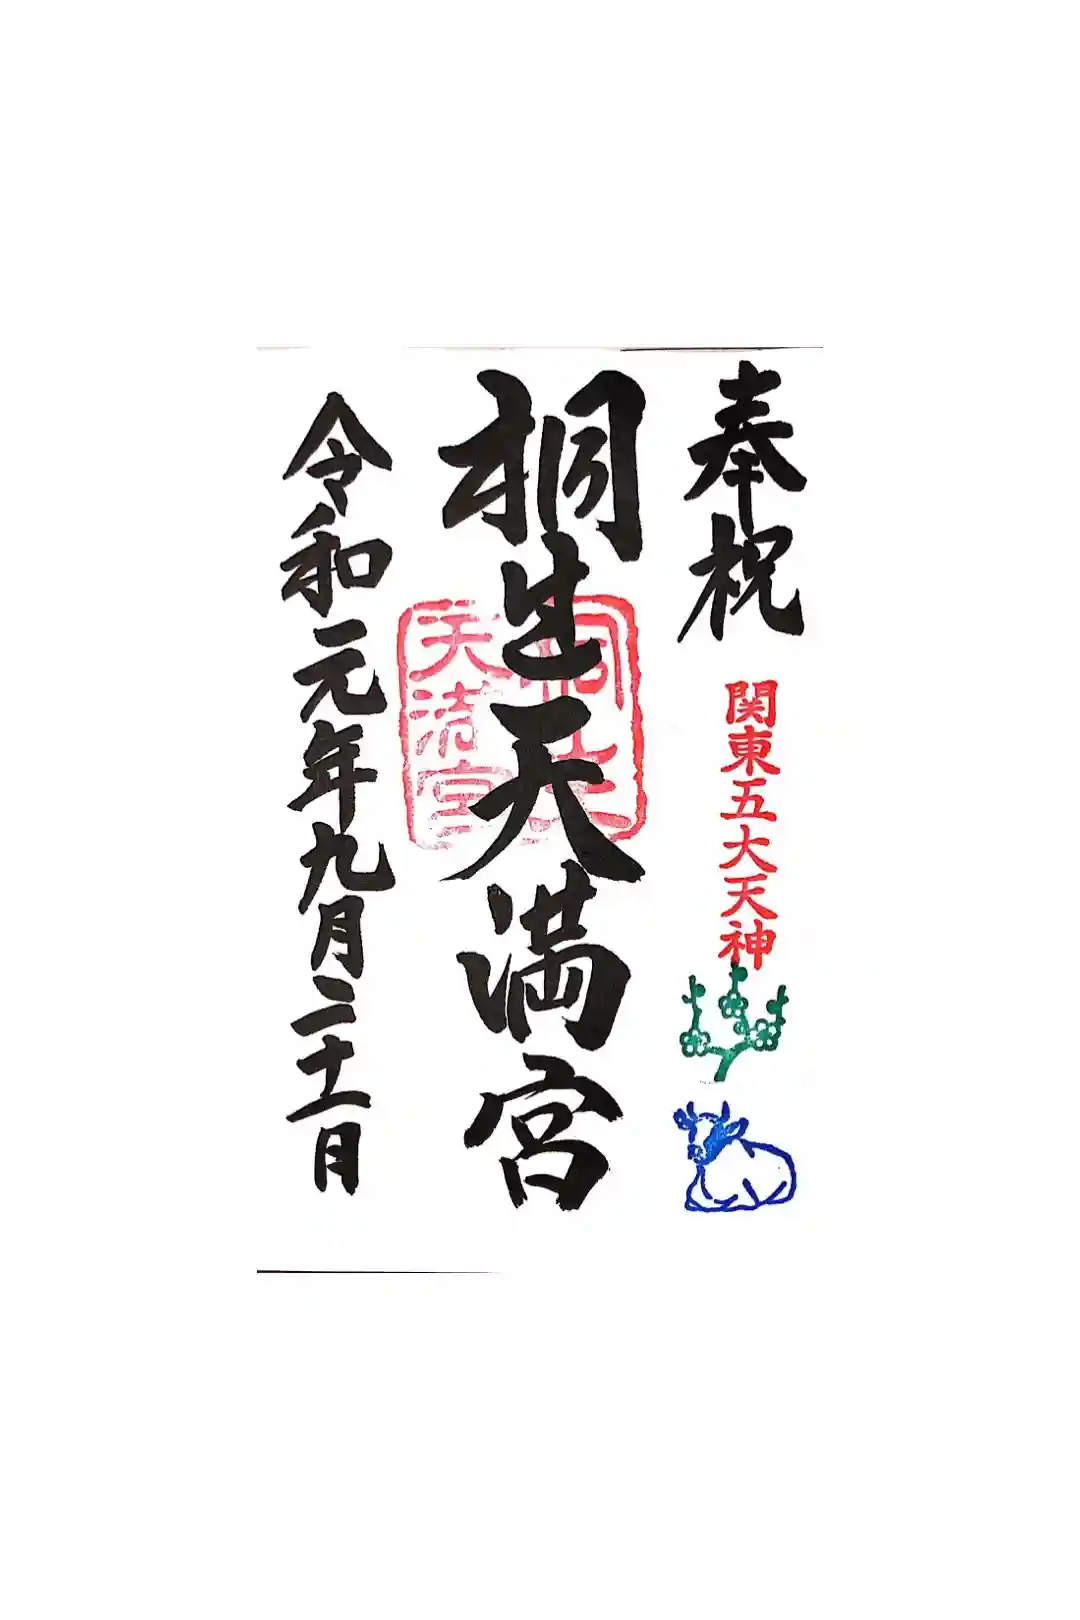 奉祝
関東五大天神
桐生天満宮
天満宮
令和元年九月二十一日